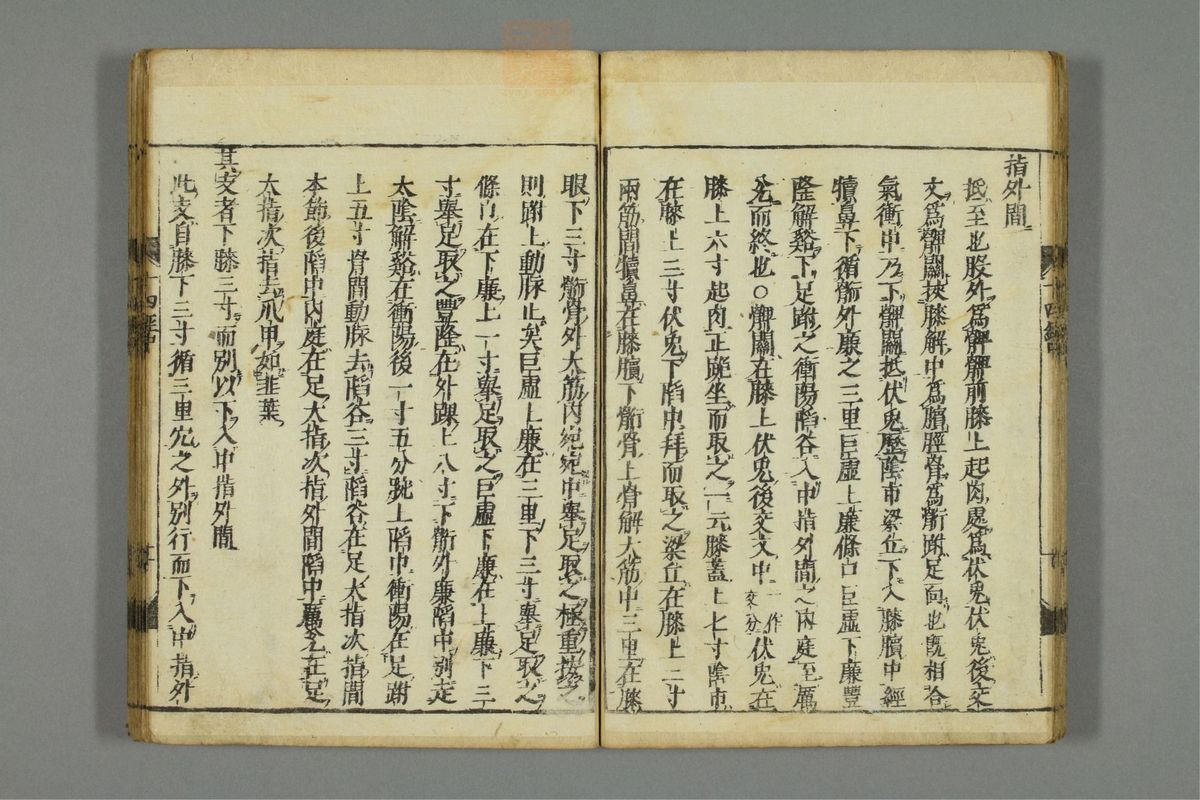 指外間
抵至也股外爲髀髀前膝上起肉處爲伏兔伏兔後交
文爲髀關挾膝解中爲臏脛骨爲䯒跗足面也既相合
氣衝中乃下髀關抵伏兔歷陰市梁丘下入膝臏中經
犢鼻下循䯒外廉之三里巨虛上廉條口巨虛下廉豐
隆解谿下足跗之衝陽陷谷入中指外間之内庭至厲
兊而終也○髀關在膝上伏兔後交文中一作交分伏兔在
膝上六寸起肉正跪坐而取之一云膝蓋上七寸陰市
在膝上三寸伏兔下陷中拜而取之梁丘在膝上二寸
兩筋間犢鼻在膝臏下䯒骨上骨解大筋中三里在膝
眼下三寸䯒骨外大筋内宛宛中舉足取之極重按之
則跗上動脉止矣巨虛上廉在三里下三寸舉足取之
條口在下廉上一寸舉足取之巨虛下廉在上廉下三
寸舉足取之豐隆在外踝上八寸下䯒外廉陷中別走
太陰解谿在衝陽後一寸五分腕上陷中衝陽在足跗
上五寸骨間動脉去陷谷三寸陷谷在足大指次指間
本節後陷中内庭在足大指次指外間陷中厲兊在足
大指次指去爪甲如韭葉
其支者下膝三寸而別以下入中指外間
此支自膝下三寸循三里穴之外別行而下入中指外
十四經
十四經